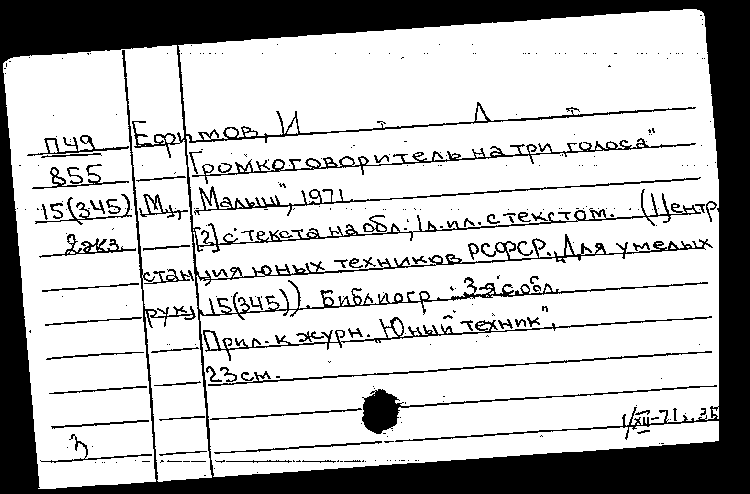 П49 Ефимов, И
855 Громкоговоритель на три "голоса".
15(345) М., "Малыш", 1971.
2экз. [2] с текста на обл.; 1 л. ил. с текстом. (Центр.
станция юных техников РСФСР. "Для умелых
рук" 15(345)). Библиогр.: 3-я с. обл.
Прил. к журн. "Юный техник",
23 см.
1/XII-71г.